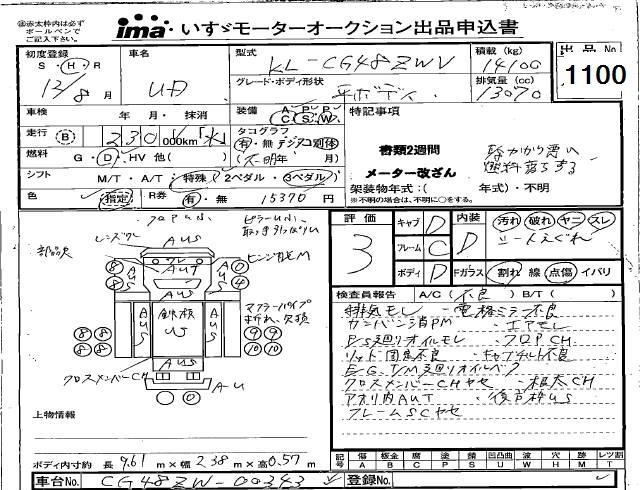 赤太枠内は必ず
ボールペンで
ご記入下さい。
ima いすゞモーターオークション出品申込書
初度登録 S・H・R 12/8月
車名 UD
型式 KL-CG48ZWV
グレード・ボディ形状 平ボディ
積載(kg) 14100
排気量(cc) 13070
出品No. 1100
車検 年・月・抹消
走行 B 230 000km
燃料 G・D・HV 他( )
シフト M/T・A/T・特殊(2ペダル・3ペダル)
色 指定 R券 有・無 15370円
装備 A/C P/S P/W
タコグラフ 有・無 デジタコ別体
(不明年 月)
特記事項
書類2週間
メーター改ざん
エンジンかかり悪い
燃料落ちする
架装物年式:( 年式)・不明
※不明の場合は、不明に○をする。
評価 3
キャブ D
フレーム C
ボディ D
内装 D
汚れ 破れ ヤニ スレ
シートえぐれ
Fガラス 割れ 線 点傷 イバリ
検査員報告 A/C(不良) B/T( )
排気モレ・電格ミラー不良
カンバン消PM・エアモレ
P/S廻りオイルモレ・フロアCH
リッド固着不良・キャブチルト不良
E/G,T/M廻りオイルベタ
クロスメンバーCHヤセ・根太CH
アオリ内AUT・後戸枠US
フレームSCヤセ
部品欠
レンズワレ
AUS
ワレ
AUT
AUS
鉄板
US
マフラーパイプ
折れ、欠損
クロスメンバーCH
AUS
A-U
8 8 8 8 8 8
0 4 9 9 10 10
上物情報
ボディ内寸約 長9.61m×幅2.38m×高0.57m
記号 傷A 板金B 腐C 塗P 錆S 凹凸曲U 波W 穴H 跡M レツ割T
車台No. CG48ZW-00343
登録No.